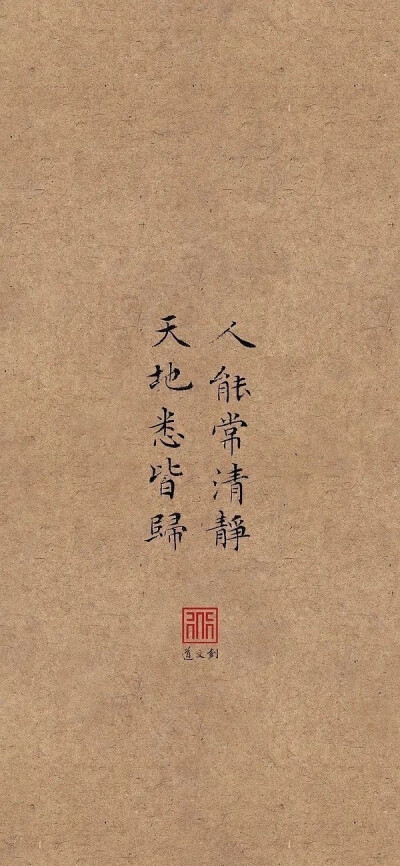 人能常清靜
天地悉皆歸
道文創